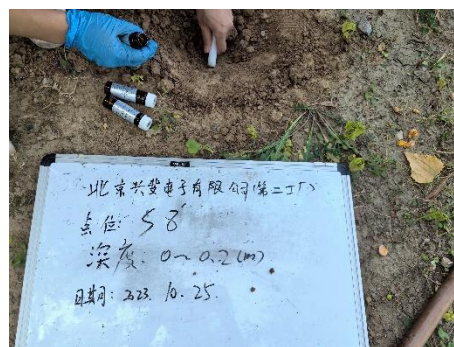 北京兴斐电子有限公司(第二工厂)
点位: S8
深度: 0~0.2(m)
日期: 2023. 10. 25.